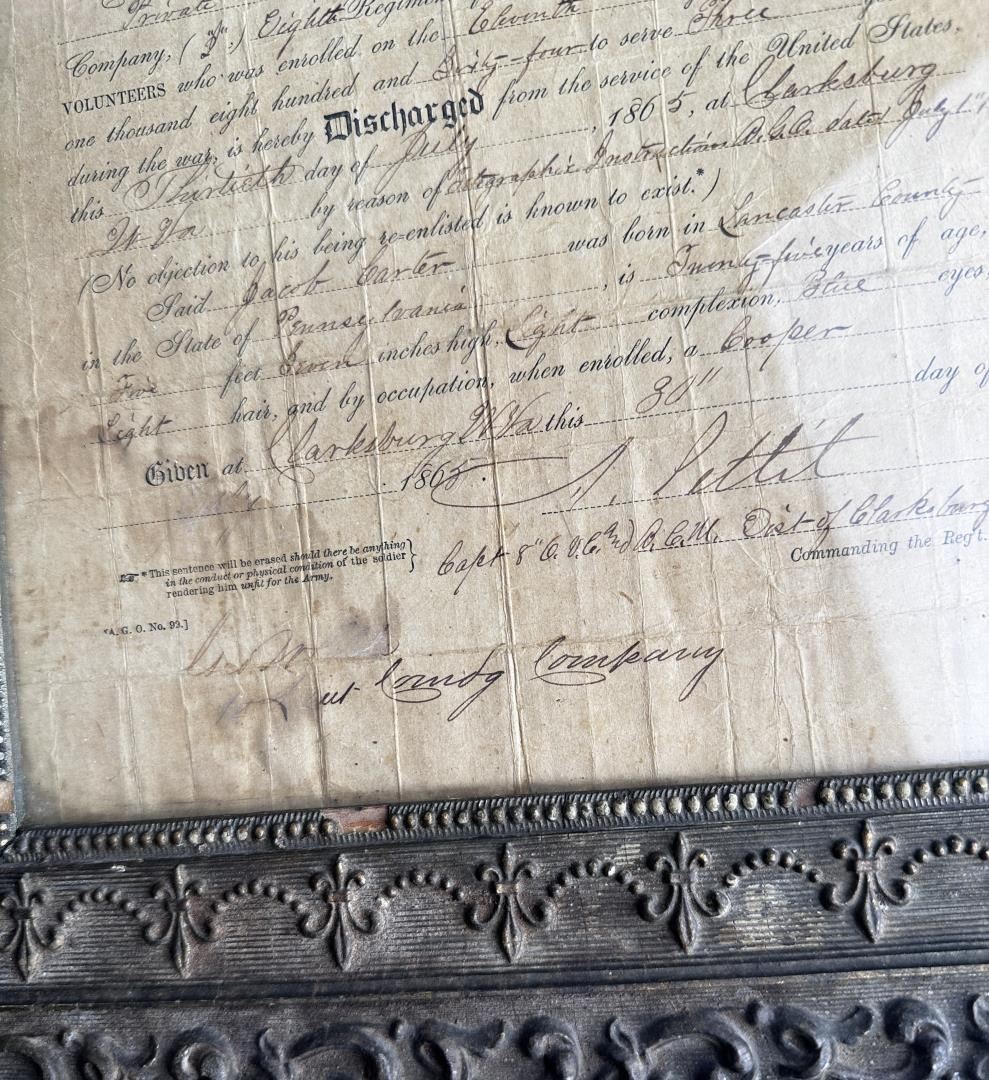 Private
Company, ( ) Eighth Regiment
VOLUNTEERS who was enrolled on the Eleventh
one thousand eight hundred and Sixty-four to serve Three
during the war, is hereby Discharged from the service of the United States,
this Thirtieth day of July, 1865, at Clarksburg
W Va by reason of Instructions A.G.O. dated July 1"
(No objection to his being re-enlisted is known to exist.*)
Said Jacob Carter was born in Lancaster County
in the State of Pennsylvania, is Twenty-five years of age,
Five feet Seven inches high, Light complexion, Blue eyes,
Light hair, and by occupation, when enrolled, a Cooper
Given at Clarksburg W Va this 30" day of
1865. Pettit
Capt 8" O. V. C. & A. C. M. Dist of Clarksburg
Commanding the Reg't.
*This sentence will be erased should there be anything
in the conduct or physical condition of the soldier
rendering him unfit for the Army.
[A. G. O. No. 99.]
Comdg Company